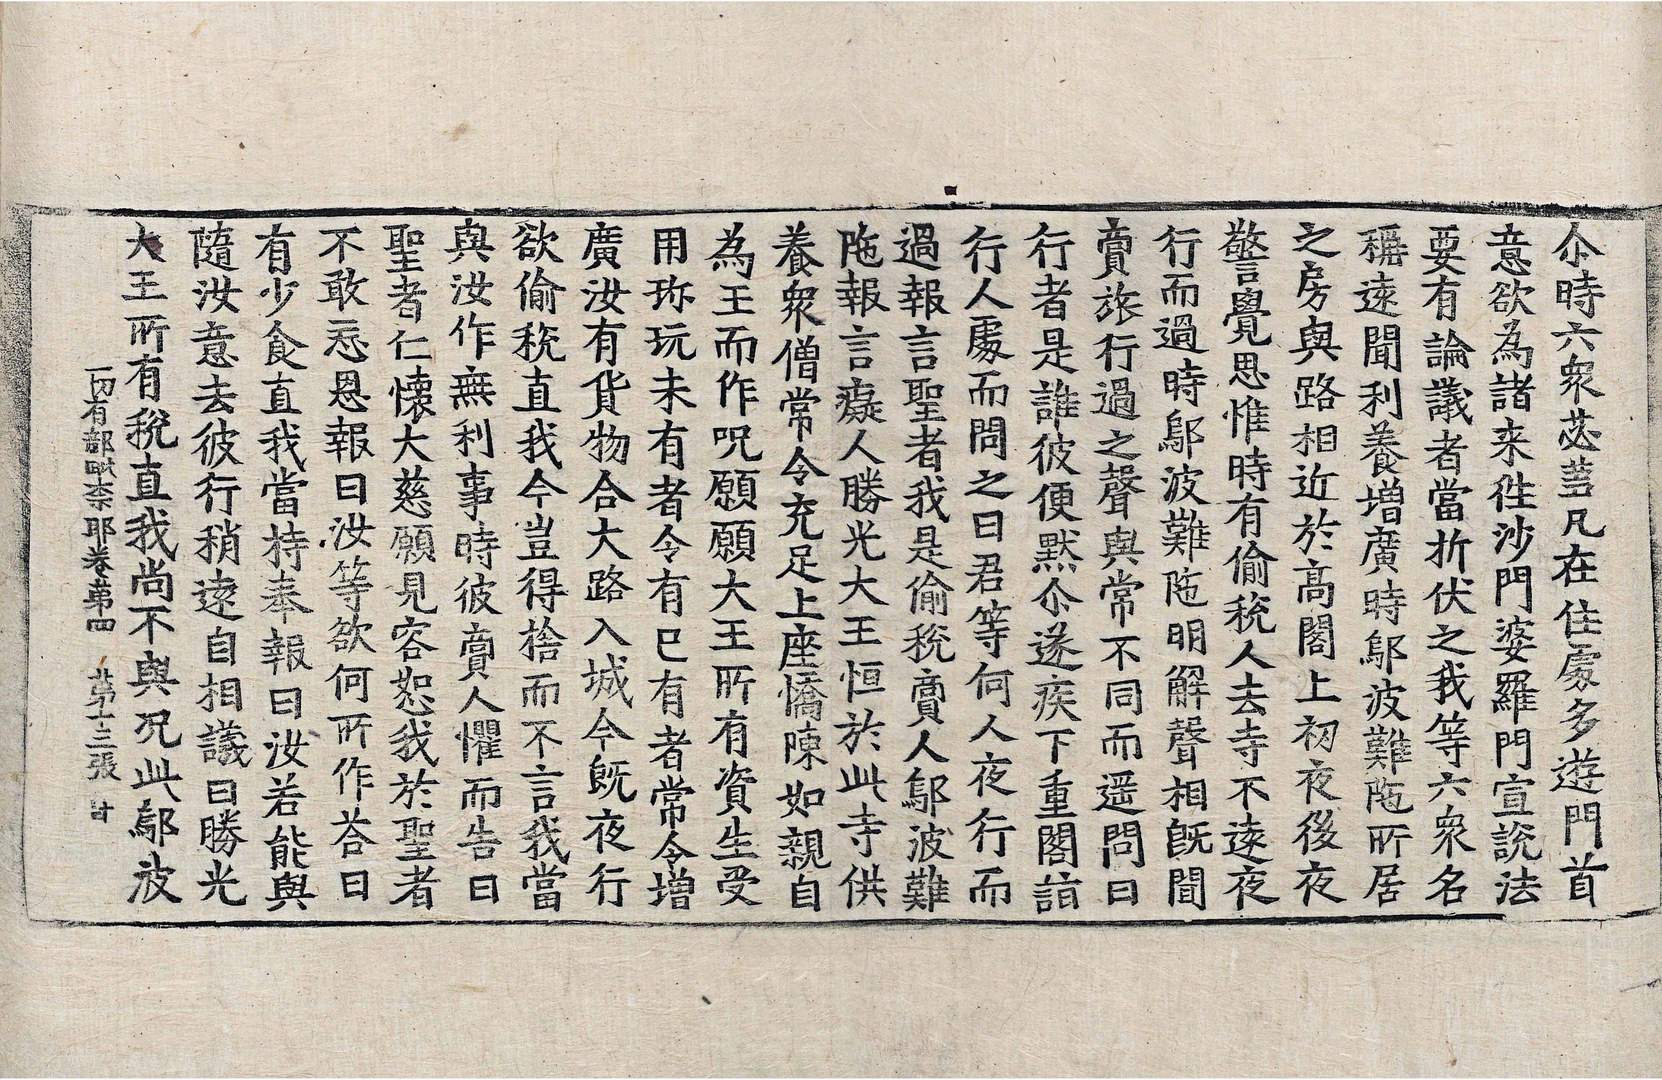 尒時六衆苾蒭凡在住處多遊門首
意欲為諸来徃沙門婆羅門宣說法
要有論議者當折伏之我等六衆名
稱遠聞利養增廣時鄔波難陁所居
之房與路相近於高閣上初夜後夜
警覺思惟時有偷稅人去寺不遠夜
行而過時鄔波難陁明解聲相旣聞
賣旅行過之聲與常不同而遥問曰
行者是誰彼便默尒遂疾下重閣詣
行人處而問之曰君等何人夜行而
過報言聖者我是偷稅賣人鄔波難
陁報言癡人勝光大王恒於此寺供
養衆僧常令充足上座憍陳如親自
為王而作呪願願大王所有資生受
用珎玩未有者令有已有者常令增
廣汝有貨物合大路入城今旣夜行
欲偷稅直我今豈得捨而不言我當
與汝作無利事時彼賣人懼而告曰
聖者仁懷大慈願見容恕我於聖者
不敢忘恩報曰汝等欲何所作荅曰
有少食直我當持奉報曰汝若能與
隨汝意去彼行稍遠自相議曰勝光
大王所有稅直我尚不與況此鄔波
一切有部毗柰耶卷第四 第十三張 甘